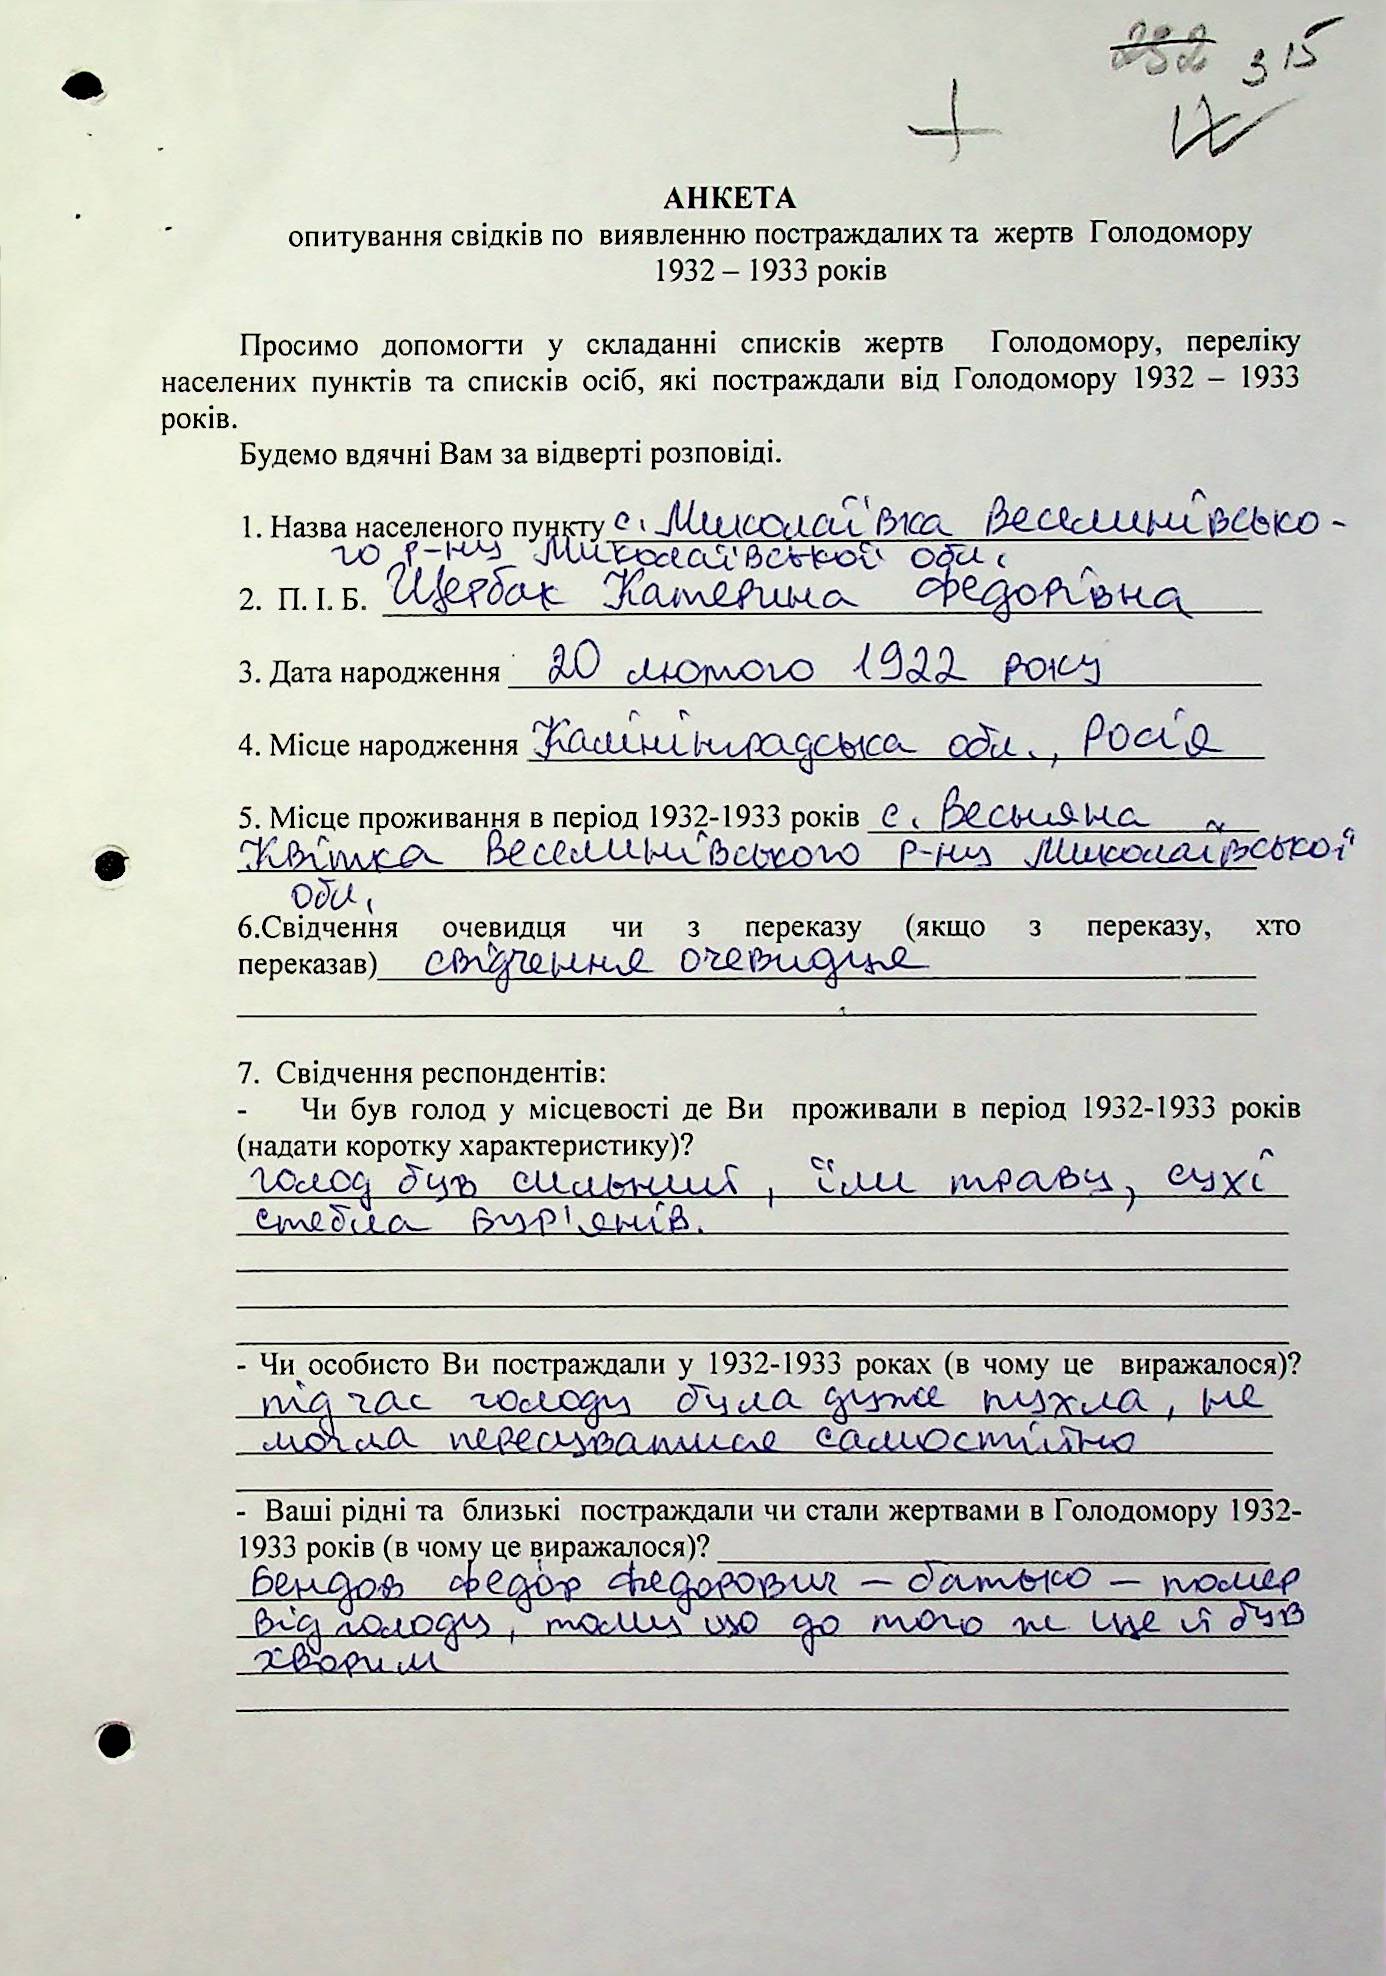 292 315
АНКЕТА
опитування свідків по виявленню постраждалих та жертв Голодомору
1932 – 1933 років
Просимо допомогти у складанні списків жертв Голодомору, переліку
населених пунктів та списків осіб, які постраждали від Голодомору 1932 – 1933
років.
Будемо вдячні Вам за відверті розповіді.
1. Назва населеного пункту с. Миколаївка Веселинівсько-
го р-ну Миколаївської обл.
2. П. І. Б. Щербак Катерина Федорівна
3. Дата народження 20 лютого 1922 року
4. Місце народження Калінінградська обл., Росія
5. Місце проживання в період 1932-1933 років с. Весняна
Квітка Веселинівського р-ну Миколаївської
обл.
6.Свідчення очевидця чи з переказу (якщо з переказу, хто
переказав) свідчення очевидця
7. Свідчення респондентів:
- Чи був голод у місцевості де Ви проживали в період 1932-1933 років
(надати коротку характеристику)?
голод був сильний, їли траву, сухі
стебла бур'янів.
- Чи особисто Ви постраждали у 1932-1933 роках (в чому це виражалося)?
під час голоду була дуже пухла, не
могла пересуватися самостійно
- Ваші рідні та близькі постраждали чи стали жертвами в Голодомору 1932-
1933 років (в чому це виражалося)?
Бендов Федір Федорович – батько – помер
від голоду, тому що до того ж ще й був
хворим